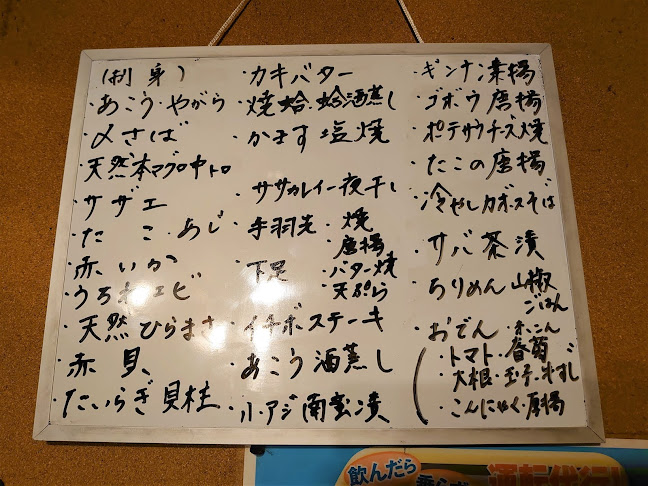 (刺身)
・あこう・やがら
・〆さば
・天然本マグロ中トロ
・サザエ
・たこ・あじ
・赤いか
・うちわエビ
・天然ひらまさ
・赤貝
・たいらぎ貝柱
・カキバター
・焼蛤・蛤酒蒸し
・かます塩焼
・ササカレイ一夜干し
・手羽先・焼
・唐揚
・下足・バター焼
・天ぷら
・イチボステーキ
・あこう酒蒸し
・小アジ南蛮漬
・ギンナン素揚
・ゴボウ唐揚
・ポテサラチーズ焼
・たこの唐揚
・冷やしカボスそば
・サバ茶漬
・ちりめん山椒
ごはん
・おでん・糸こん
・トマト・春菊
・大根・玉子・牛すじ
・こんにゃく・厚揚
飲んだら
乗らず
運転代行